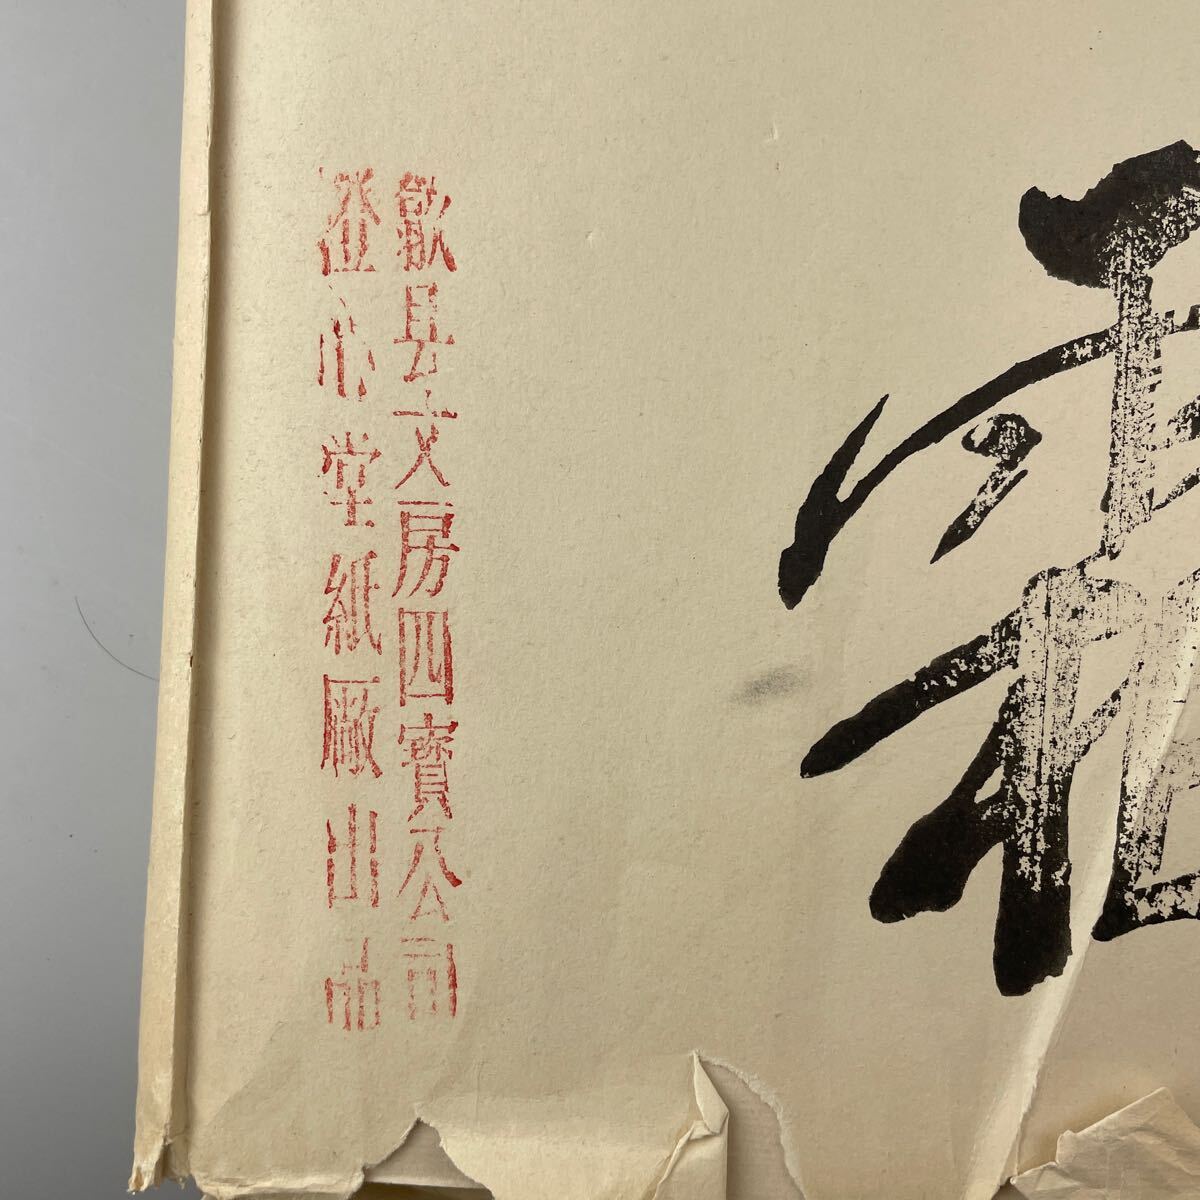 歙县文房四寳公司
澄心堂紙厰出品